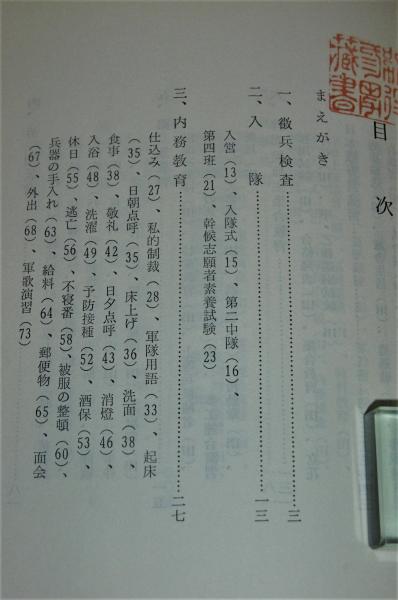 目次
まえがき
一、徴兵検査……三
二、入隊……一三
入営(13)、入隊式(15)、第二中隊(16)、
第四班(21)、幹候志願者素養試験(23)
三、内務教育……二七
仕込み(27)、私的制裁(28)、軍隊用語(33)、起床
(35)、日朝点呼(35)、床上げ(36)、洗面(38)、
食事(38)、敬礼(42)、日夕点呼(43)、消燈(46)、
入浴(48)、洗濯(49)、予防接種(52)、酒保(53)、
休日(55)、逃亡(56)、不寝番(58)、被服の整頓(60)、
兵器の手入れ(63)、給料(64)、郵便物(65)、面会
(67)、外出(68)、軍歌演習(73)